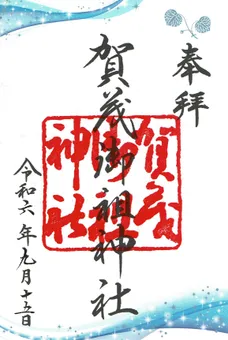 奉拝
賀茂御祖神社
賀茂御祖神社
令和六年九月十三日